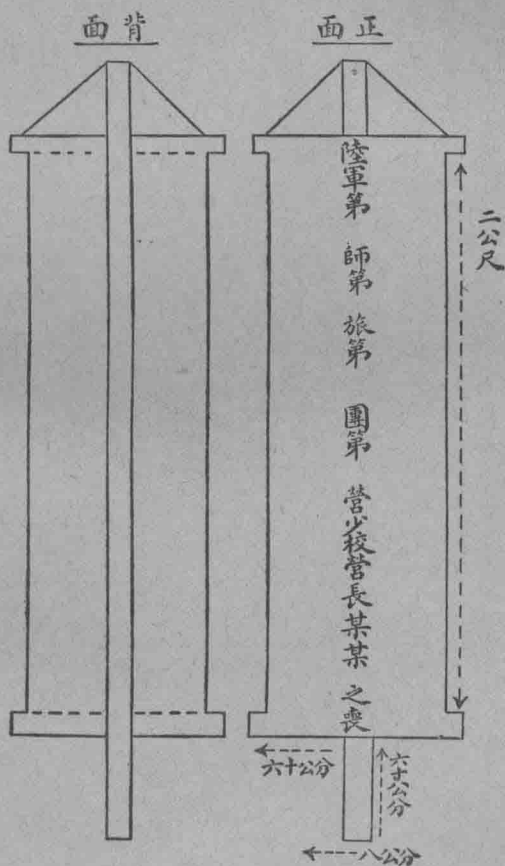 正面
背面
陸軍第　師第　旅第　團第　營少校營長某某之喪
二公尺
六十公分
六十公分
八公分